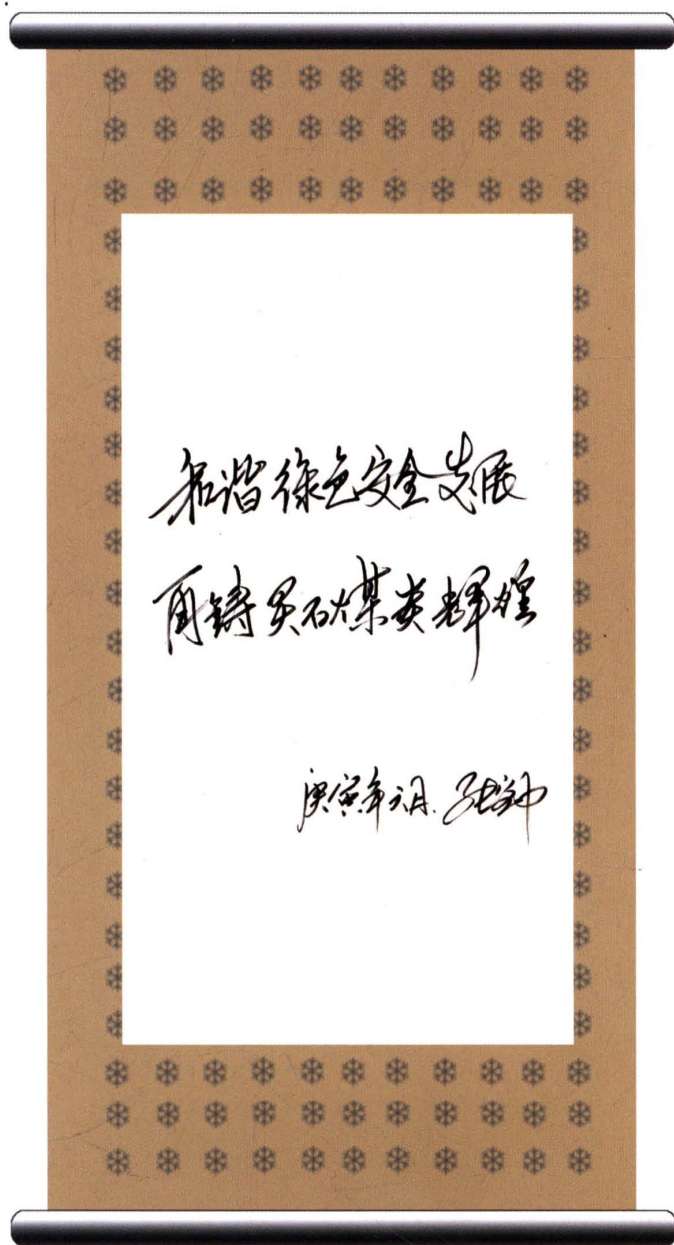 和谐绿色安全发展
再铸吴矿煤炭辉煌
庚寅年 月